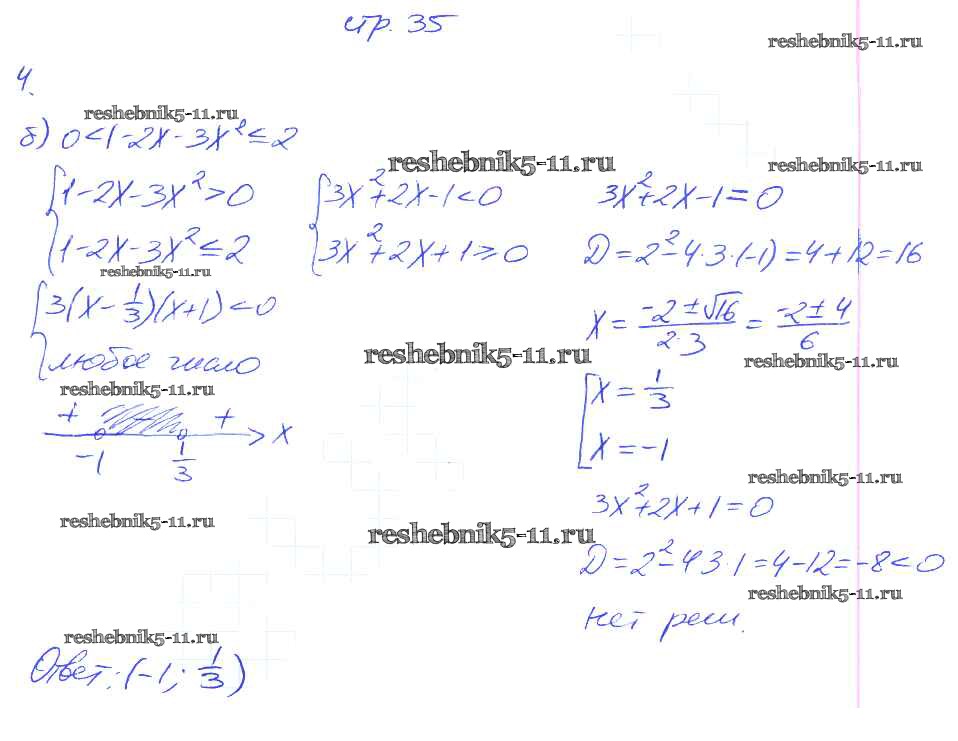 стр. 35
reshebnik5-11.ru
4.
reshebnik5-11.ru
б) 0<1-2x-3x²≤2
reshebnik5-11.ru
reshebnik5-11.ru
{1-2x-3x²>0
{1-2x-3x²≤2
reshebnik5-11.ru
{3x²+2x-1<0
{3x²+2x+1≥0
3x²+2x-1=0
D=2²-4·3·(-1)=4+12=16
{3(x-1/3)(x+1)<0
{любое число
reshebnik5-11.ru
reshebnik5-11.ru
x=(-2±√16)/(2·3)=(-2±4)/6
reshebnik5-11.ru
[x=1/3
[x=-1
+ + x
-1 1/3
reshebnik5-11.ru
3x²+2x+1=0
reshebnik5-11.ru
reshebnik5-11.ru
D=2²-4·3·1=4-12=-8<0
reshebnik5-11.ru
нет реш.
reshebnik5-11.ru
Ответ: (-1; 1/3)